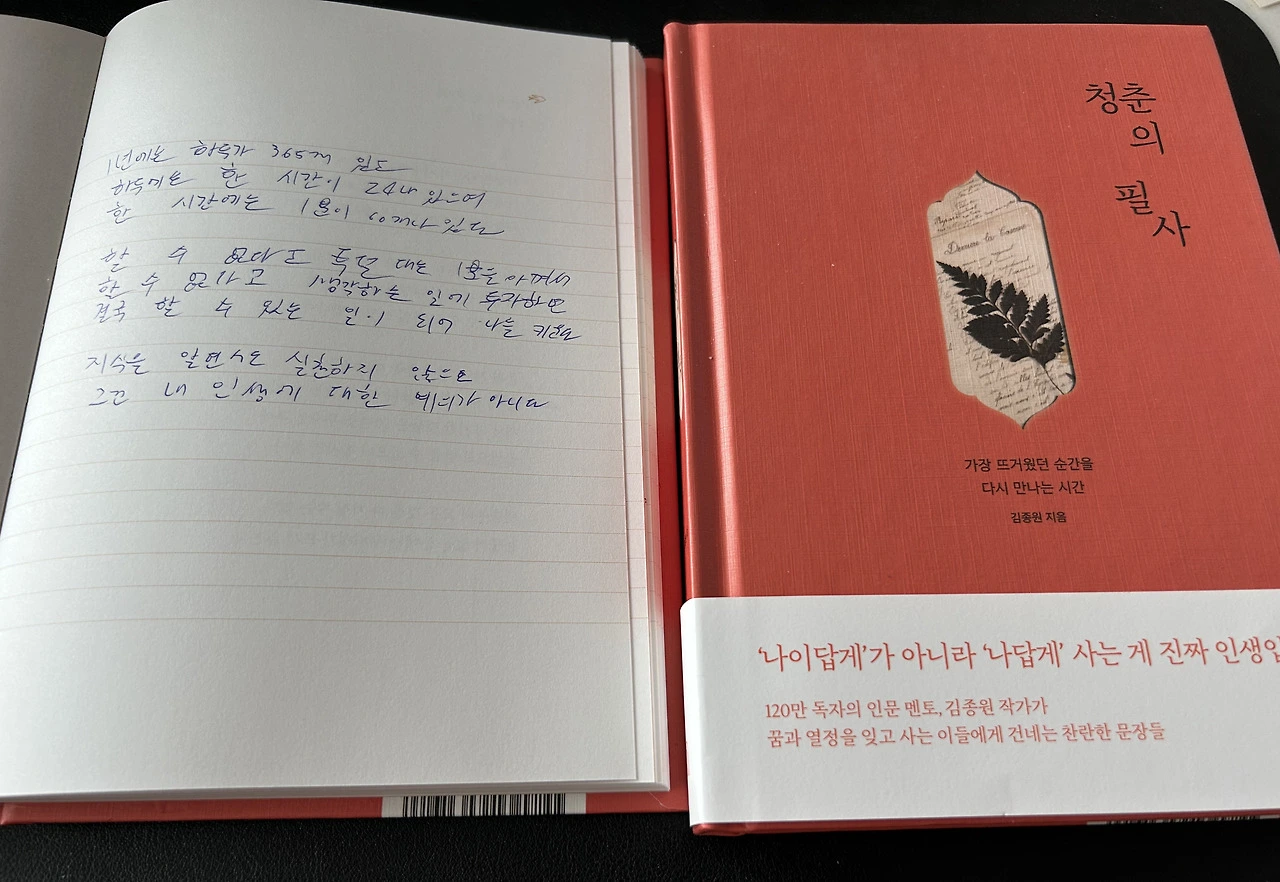 1년에는 하루가 365개 있고
하루에는 한 시간이 24개 있으며
한 시간에는 1분이 60개나 있다
할 수 없다고 투덜 대는 1분을 아껴서
할 수 없다고 생각하는 일에 투자하면
결국 할 수 있는 일이 되어 나를 키운다
지식을 알면서도 실천하지 않으면
그건 내 인생에 대한 예의가 아니다
청춘
의
필
사
가장 뜨거웠던 순간을
다시 만나는 시간
김종원 지음
‘나이답게’가 아니라 ‘나답게’ 사는 게 진짜
120만 독자의 인문 멘토, 김종원 작가가
꿈과 열정을 잊고 사는 이들에게 건네는 찬란한 문장들